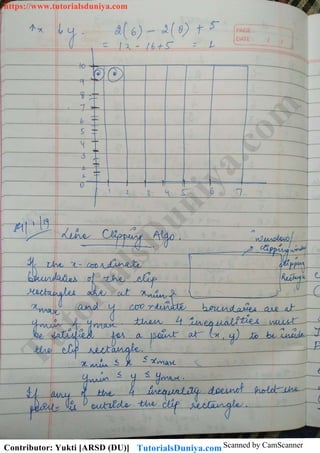 https://www.tutorialsduniya.com
↑x by. 2(6) - 2(8) + 5
= 12 - 16 + 5 = 1
PAGE:
DATE: / /
10
9
8
7
6
5
4
3
2
1
0
1 2 3 4 5 6 7
Line Clipping Algo.
window/
clipping window
clipping
Rectangle
If the x-coordinate
boundaries of the clip
rectangles are at xmin &
xmax and y coordinate boundaries are at
ymin & ymax then 4 inequalities must
be satisfied for a point at (x, y) to be inside
the clip rectangle.
xmin ≤ x ≤ xmax
ymin ≤ y ≤ ymax.
If any of the 4 inequality doesnot hold the
point is outside the clip rectangle.
TutorialsDuniya.com
Contributor: Yukti [ARSD (DU)] TutorialsDuniya.com Scanned by CamScanner